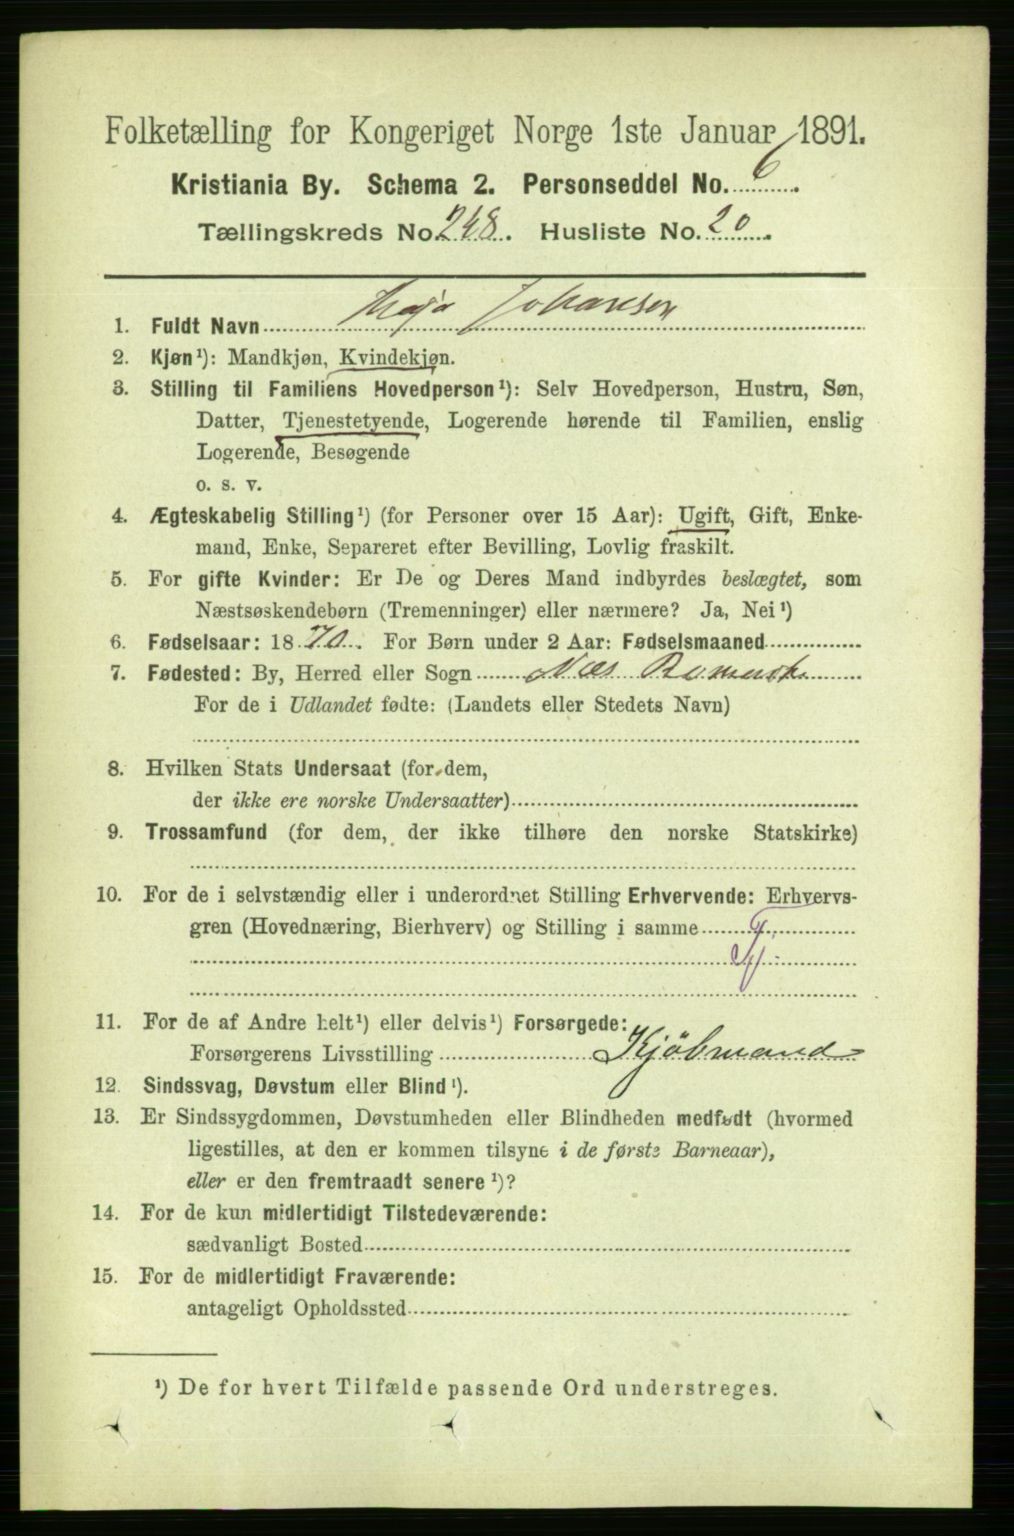 Folketælling for Kongeriget Norge 1ste Januar 1891.
Kristiania By. Schema 2. Personseddel No. 6.
Tællingskreds No. 248. Husliste No. 20.
1. Fuldt Navn Maja Johansen
2. Kjøn¹): Mandkjøn, Kvindekjøn.
3. Stilling til Familiens Hovedperson¹): Selv Hovedperson, Hustru, Søn,
Datter, Tjenestetyende, Logerende hørende til Familien, enslig
Logerende, Besøgende
o. s. v.
4. Ægteskabelig Stilling¹) (for Personer over 15 Aar): Ugift, Gift, Enke-
mand, Enke, Separeret efter Bevilling, Lovlig fraskilt.
5. For gifte Kvinder: Er De og Deres Mand indbyrdes beslægtet, som
Næstsøskendebørn (Tremenninger) eller nærmere? Ja, Nei¹)
6. Fødselsaar: 1870. For Børn under 2 Aar: Fødselsmaaned
7. Fødested: By, Herred eller Sogn Næs Romerike
For de i Udlandet fødte: (Landets eller Stedets Navn)
8. Hvilken Stats Undersaat (for dem,
der ikke ere norske Undersaatter)
9. Trossamfund (for dem, der ikke tilhøre den norske Statskirke)
10. For de i selvstændig eller i underordnet Stilling Erhvervende: Erhvervs-
gren (Hovednæring, Bierhverv) og Stilling i samme
Tj:
11. For de af Andre helt¹) eller delvis¹) Forsørgede:
Forsørgerens Livsstilling Kjøbmand
12. Sindssvag, Døvstum eller Blind¹).
13. Er Sindssygdommen, Døvstumheden eller Blindheden medfødt (hvormed
ligestilles, at den er kommen tilsyne i de første Barneaar),
eller er den fremtraadt senere¹)?
14. For de kun midlertidigt Tilstedeværende:
sædvanligt Bosted
15. For de midlertidigt Fraværende:
antageligt Opholdssted
¹) De for hvert Tilfælde passende Ord understreges.